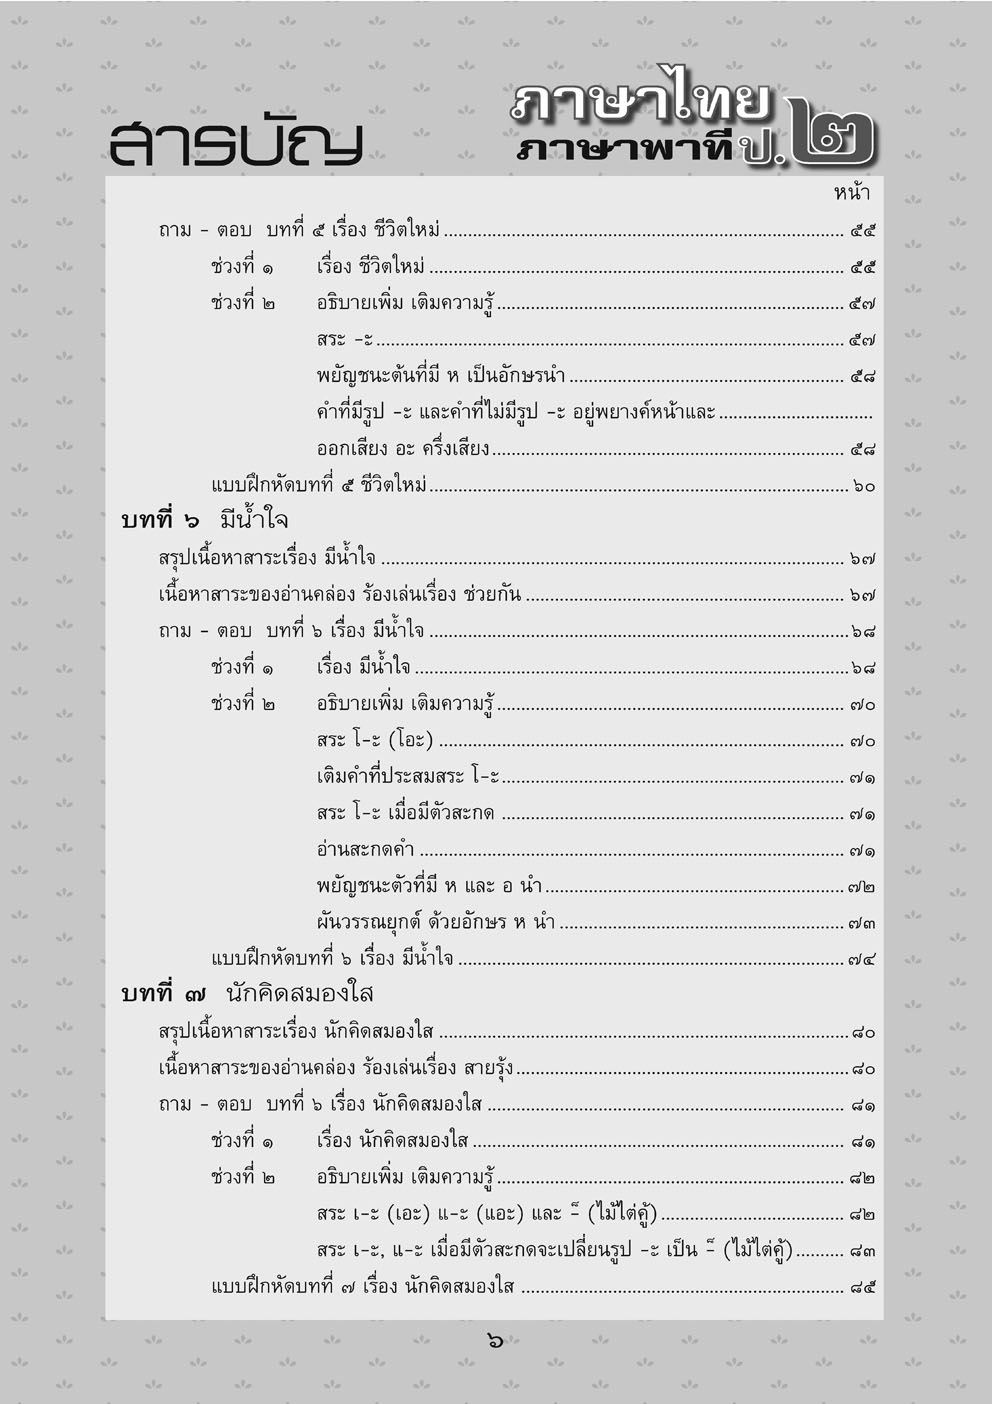 สารบัญ
ภาษาไทย
ภาษาพาที ป.๒
หน้า
ถาม - ตอบ บทที่ ๕ เรื่อง ชีวิตใหม่ ๕๕
ช่วงที่ ๑ เรื่อง ชีวิตใหม่ ๕๕
ช่วงที่ ๒ อธิบายเพิ่ม เติมความรู้ ๕๗
สระ -ะ ๕๗
พยัญชนะต้นที่มี ห เป็นอักษรนำ ๕๘
คำที่มีรูป -ะ และคำที่ไม่มีรูป -ะ อยู่พยางค์หน้าและ
ออกเสียง อะ ครึ่งเสียง ๕๘
แบบฝึกหัดบทที่ ๕ ชีวิตใหม่ ๖๐
บทที่ ๖ มีน้ำใจ
สรุปเนื้อหาสาระเรื่อง มีน้ำใจ ๖๗
เนื้อหาสาระของอ่านคล่อง ร้องเล่นเรื่อง ช่วยกัน ๖๗
ถาม - ตอบ บทที่ ๖ เรื่อง มีน้ำใจ ๖๘
ช่วงที่ ๑ เรื่อง มีน้ำใจ ๖๘
ช่วงที่ ๒ อธิบายเพิ่ม เติมความรู้ ๗๐
สระ โ-ะ (โอะ) ๗๐
เติมคำที่ประสมสระ โ-ะ ๗๑
สระ โ-ะ เมื่อมีตัวสะกด ๗๑
อ่านสะกดคำ ๗๑
พยัญชนะตัวที่มี ห และ อ นำ ๗๒
ผันวรรณยุกต์ ด้วยอักษร ห นำ ๗๓
แบบฝึกหัดบทที่ ๖ เรื่อง มีน้ำใจ ๗๔
บทที่ ๗ นักคิดสมองใส
สรุปเนื้อหาสาระเรื่อง นักคิดสมองใส ๘๐
เนื้อหาสาระของอ่านคล่อง ร้องเล่นเรื่อง สายรุ้ง ๘๐
ถาม - ตอบ บทที่ ๖ เรื่อง นักคิดสมองใส ๘๑
ช่วงที่ ๑ เรื่อง นักคิดสมองใส ๘๑
ช่วงที่ ๒ อธิบายเพิ่ม เติมความรู้ ๘๒
สระ เ-ะ (เอะ) แ-ะ (แอะ) และ -็ (ไม้ไต่คู้) ๘๒
สระ เ-ะ, แ-ะ เมื่อมีตัวสะกดจะเปลี่ยนรูป -ะ เป็น -็ (ไม้ไต่คู้) ๘๓
แบบฝึกหัดบทที่ ๗ เรื่อง นักคิดสมองใส ๘๕
๖